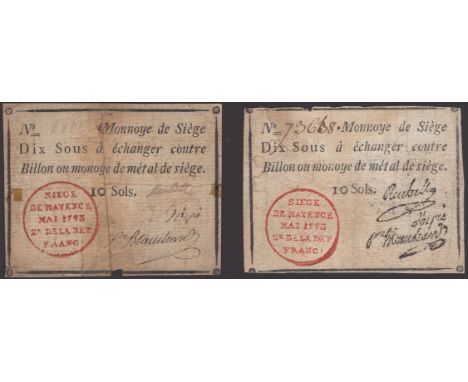 No. Monnoye de Siège
Dix Sous à échanger contre
Billon ou monoye de métal de siège.
10 Sols.
SIEGE
DE MAYENCE
MAI 1793
2e DE LA REP.
FRANC.
Blanchard
No. 73638. Monnoye de Siège
Dix Sous à échanger contre
Billon ou monoye de métal de siège.
10 Sols.
SIEGE
DE MAYENCE
MAI 1793
2e DE LA REP.
FRANC.